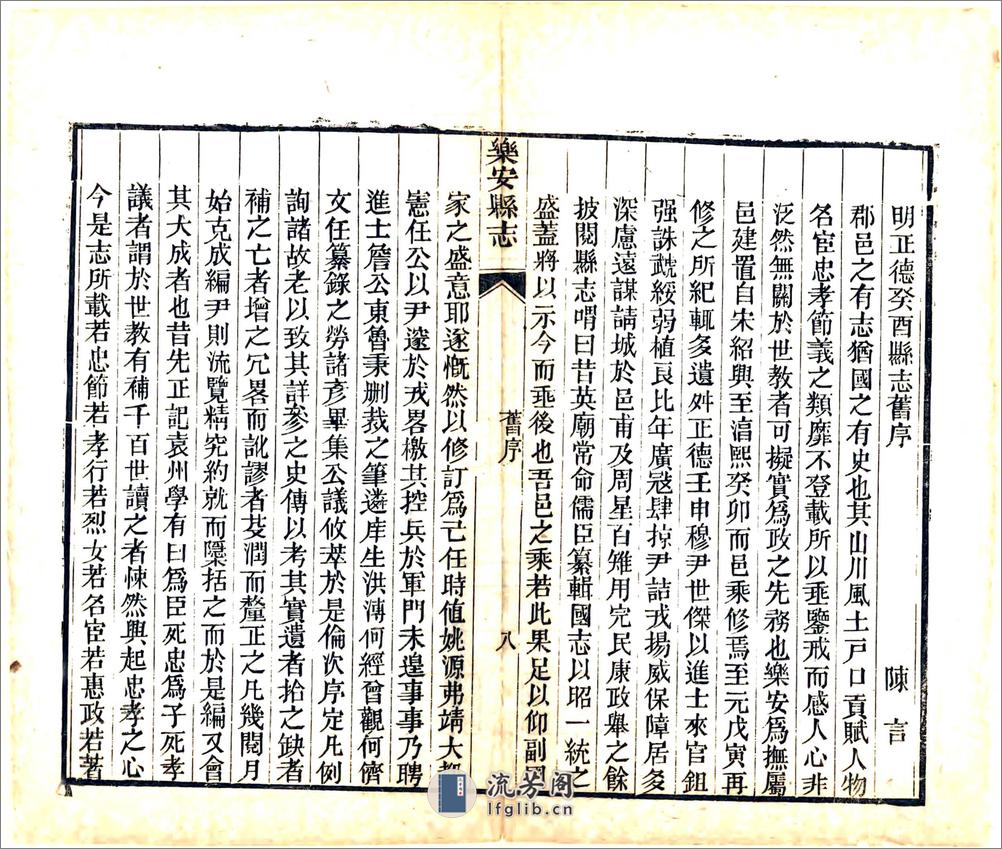 明正德癸酉縣志舊序
陳言
郡邑之有志猶國之有史也其山川風土戸口貢賦人物
名宦忠孝節義之類靡不登載所以乖鑒戒而感人心非
泛然無關於世教者可擬實爲政之先務也樂安爲撫屬
邑建置自宋紹興至淳熙癸卯而邑乘修焉至元戊寅再
修之所紀輒多遺舛正德壬申穆尹世傑以進士來官鉏
强誅虣綏弱植良比年廣寇肆掠尹詰戎揚威保障居多
深慮遠謀請城於邑甫及周星百雉用完民康政舉之餘
披閱縣志喟曰昔英廟常命儒臣纂輯國志以昭一統之
盛蓋將以示今而乖後也吾邑之乘若此果足以仰副國
樂安縣志
舊序
八
家之盛意耶遂慨然以修訂爲己任時值姚源弗靖大都
憲任公以尹邃於戎畧檄其控兵於軍門未遑事事乃聘
進士詹公東魯秉删裁之筆遴庠生洪溥何經曾觀何儕
文任纂錄之勞諸彥畢集公議攸萃於是倫次序定凡例
詢諸故老以致其詳參之史傳以考其實遺者拾之缺者
補之亡者增之冗畧而訛謬者芟潤而釐正之凡幾閱月
始克成編尹則流覽精究約就而檃括之而於是編又會
其大成者也昔先正記袁州學有曰爲臣死忠爲子死孝
議者謂於世教有補千百世讀之者悚然興起忠孝之心
今是志所載若忠節若孝行若烈女若名宦若惠政若著
流芳閣
lfglib.cn